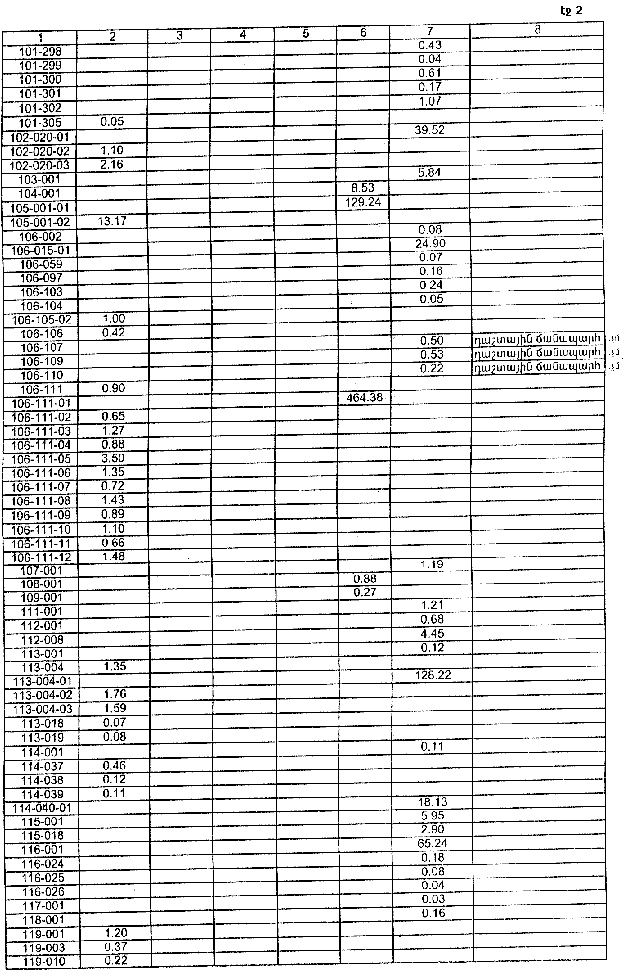 էջ 2
1 2 3 4 5 6 7 8
101-298 0.43
101-299 0.04
101-300 0.61
101-301 0.17
101-302 1.07
101-305 0.05
102-020-01 39.52
102-020-02 1.10
102-020-03 2.16
103-001 5.84
104-001 8.53
105-001-01 129.24
105-001-02 13.17
106-002 0.08
106-015-01 24.90
106-059 0.07
106-097 0.16
106-103 0.24
106-104 0.05
106-105-02 1.00
106-106 0.42
106-107 0.50 դաշտային ճանապարհ
106-109 0.53 դաշտային ճանապարհ
106-110 0.22 դաշտային ճանապարհ
106-111 0.90
106-111-01 464.38
106-111-02 0.65
106-111-03 1.27
106-111-04 0.88
106-111-05 3.50
106-111-06 1.35
106-111-07 0.72
106-111-08 1.43
106-111-09 0.89
106-111-10 1.10
106-111-11 0.66
106-111-12 1.48
107-001 1.19
108-001 0.88
109-001 0.27
111-001 1.21
112-001 0.68
112-008 4.45
113-001 0.12
113-004 1.35
113-004-01 126.22
113-004-02 1.76
113-004-03 1.59
113-018 0.07
113-019 0.08
114-001 0.11
114-037 0.46
114-038 0.12
114-039 0.11
114-040-01 18.13
115-001 5.95
115-018 2.90
116-001 65.24
116-024 0.18
116-025 0.08
116-026 0.04
117-001 0.03
118-001 0.16
119-001 1.20
119-003 0.37
119-010 0.22